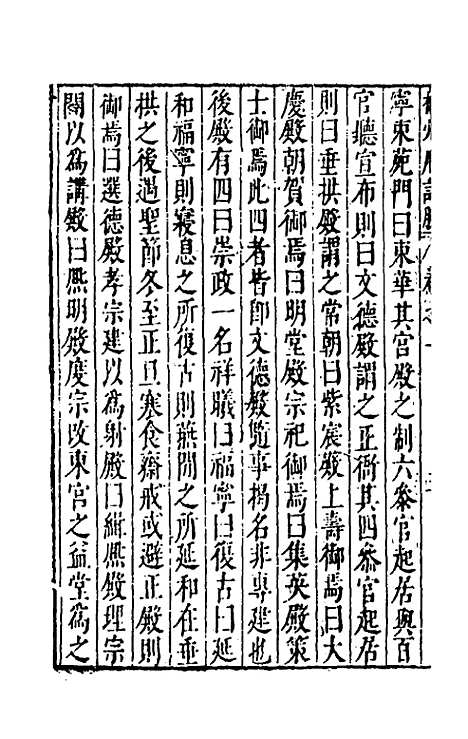 寧東苑門曰東華其宮殿之制六叅官起居與百
官聽宣布則曰文德殿謂之正衙其四叅官起居
則曰垂拱殿謂之常朝曰紫宸殿上壽御焉曰大
慶殿朝賀御焉曰明堂殿宗祀御焉曰集英殿策
士御焉此四者皆即文德殿隨事揭名非專建也
後殿有四曰崇政一名祥曦曰福寧曰復古曰延
和福寧則寢息之所復古則燕閒之所延和在垂
拱之後遇聖節冬至正旦寒食齋戒或避正殿則
御焉曰選德殿孝宗建以爲射殿曰緝熈殿理宗
闢以爲講殿曰熈明殿度宗改東宮之益堂爲之